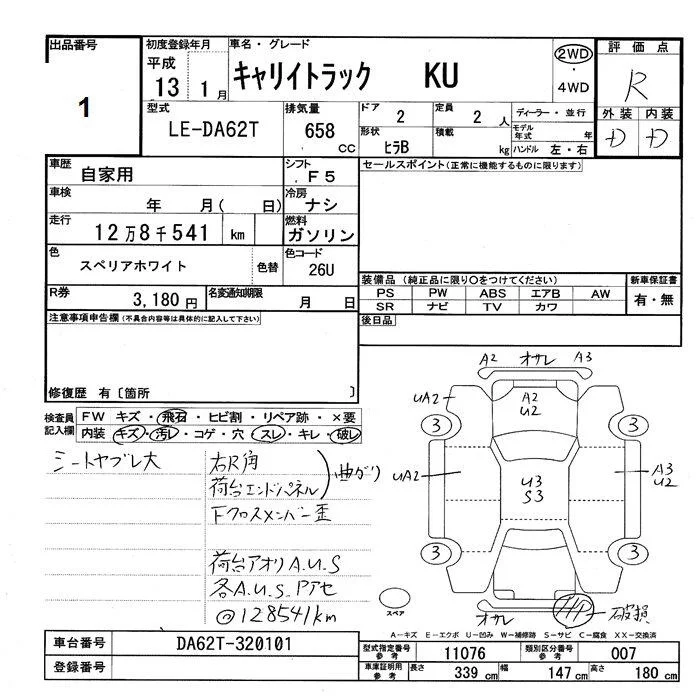 出品番号
1
初度登録年月
平成
13 1月
車名・グレード
キャリイトラック KU
2WD
・
4WD
評価点
R
外装 内装
D D
型式
LE-DA62T
排気量
658
CC
ドア
2
定員
2人
ディーラー・並行
形状
ヒラB
積載
kg
モデル年式 年
ハンドル 左・右
車歴
自家用
シフト
F5
セールスポイント(正常に機能するものに限ります)
車検
年 月( 日)
冷房
ナシ
走行
12万8千541 km
燃料
ガソリン
色
スペリアホワイト
色替
色コード
26U
装備品 (純正品に限り○をつけてください)
PS PW ABS エアB AW
SR ナビ TV カワ
新車保証書
有・無
R券
3,180円
名変通知期限
月 日
後日品
注意事項申告欄(不具合内容等は具体的に記入して下さい)
修復歴 有〔箇所 〕
検査員
記入欄
FW キズ・飛石・ヒビ割・リペア跡・×要
内装 キズ・汚レ・コゲ・穴・スレ・キレ・破レ
シートヤブレ大
右R角
荷台エンドパネル
曲がり
Fクロスメンバー歪
荷台アオリA.U.S
各A.U.S.Pアセ
@128541km
A2 オサレ A3
UA2
A2
U2
3 3
UA2
U3
S3
A3
U2
3 3
スペア
オサレ
破損
A-キズ E-エクボ U-凹み W-補修跡 S-サビ C-腐食 XX-交換済
車台番号
DA62T-320101
登録番号
型式指定番号
参考
11076
類別区分番号
参考
007
車庫証明用
参考
長さ
339
幅
147cm
高さ
180cm